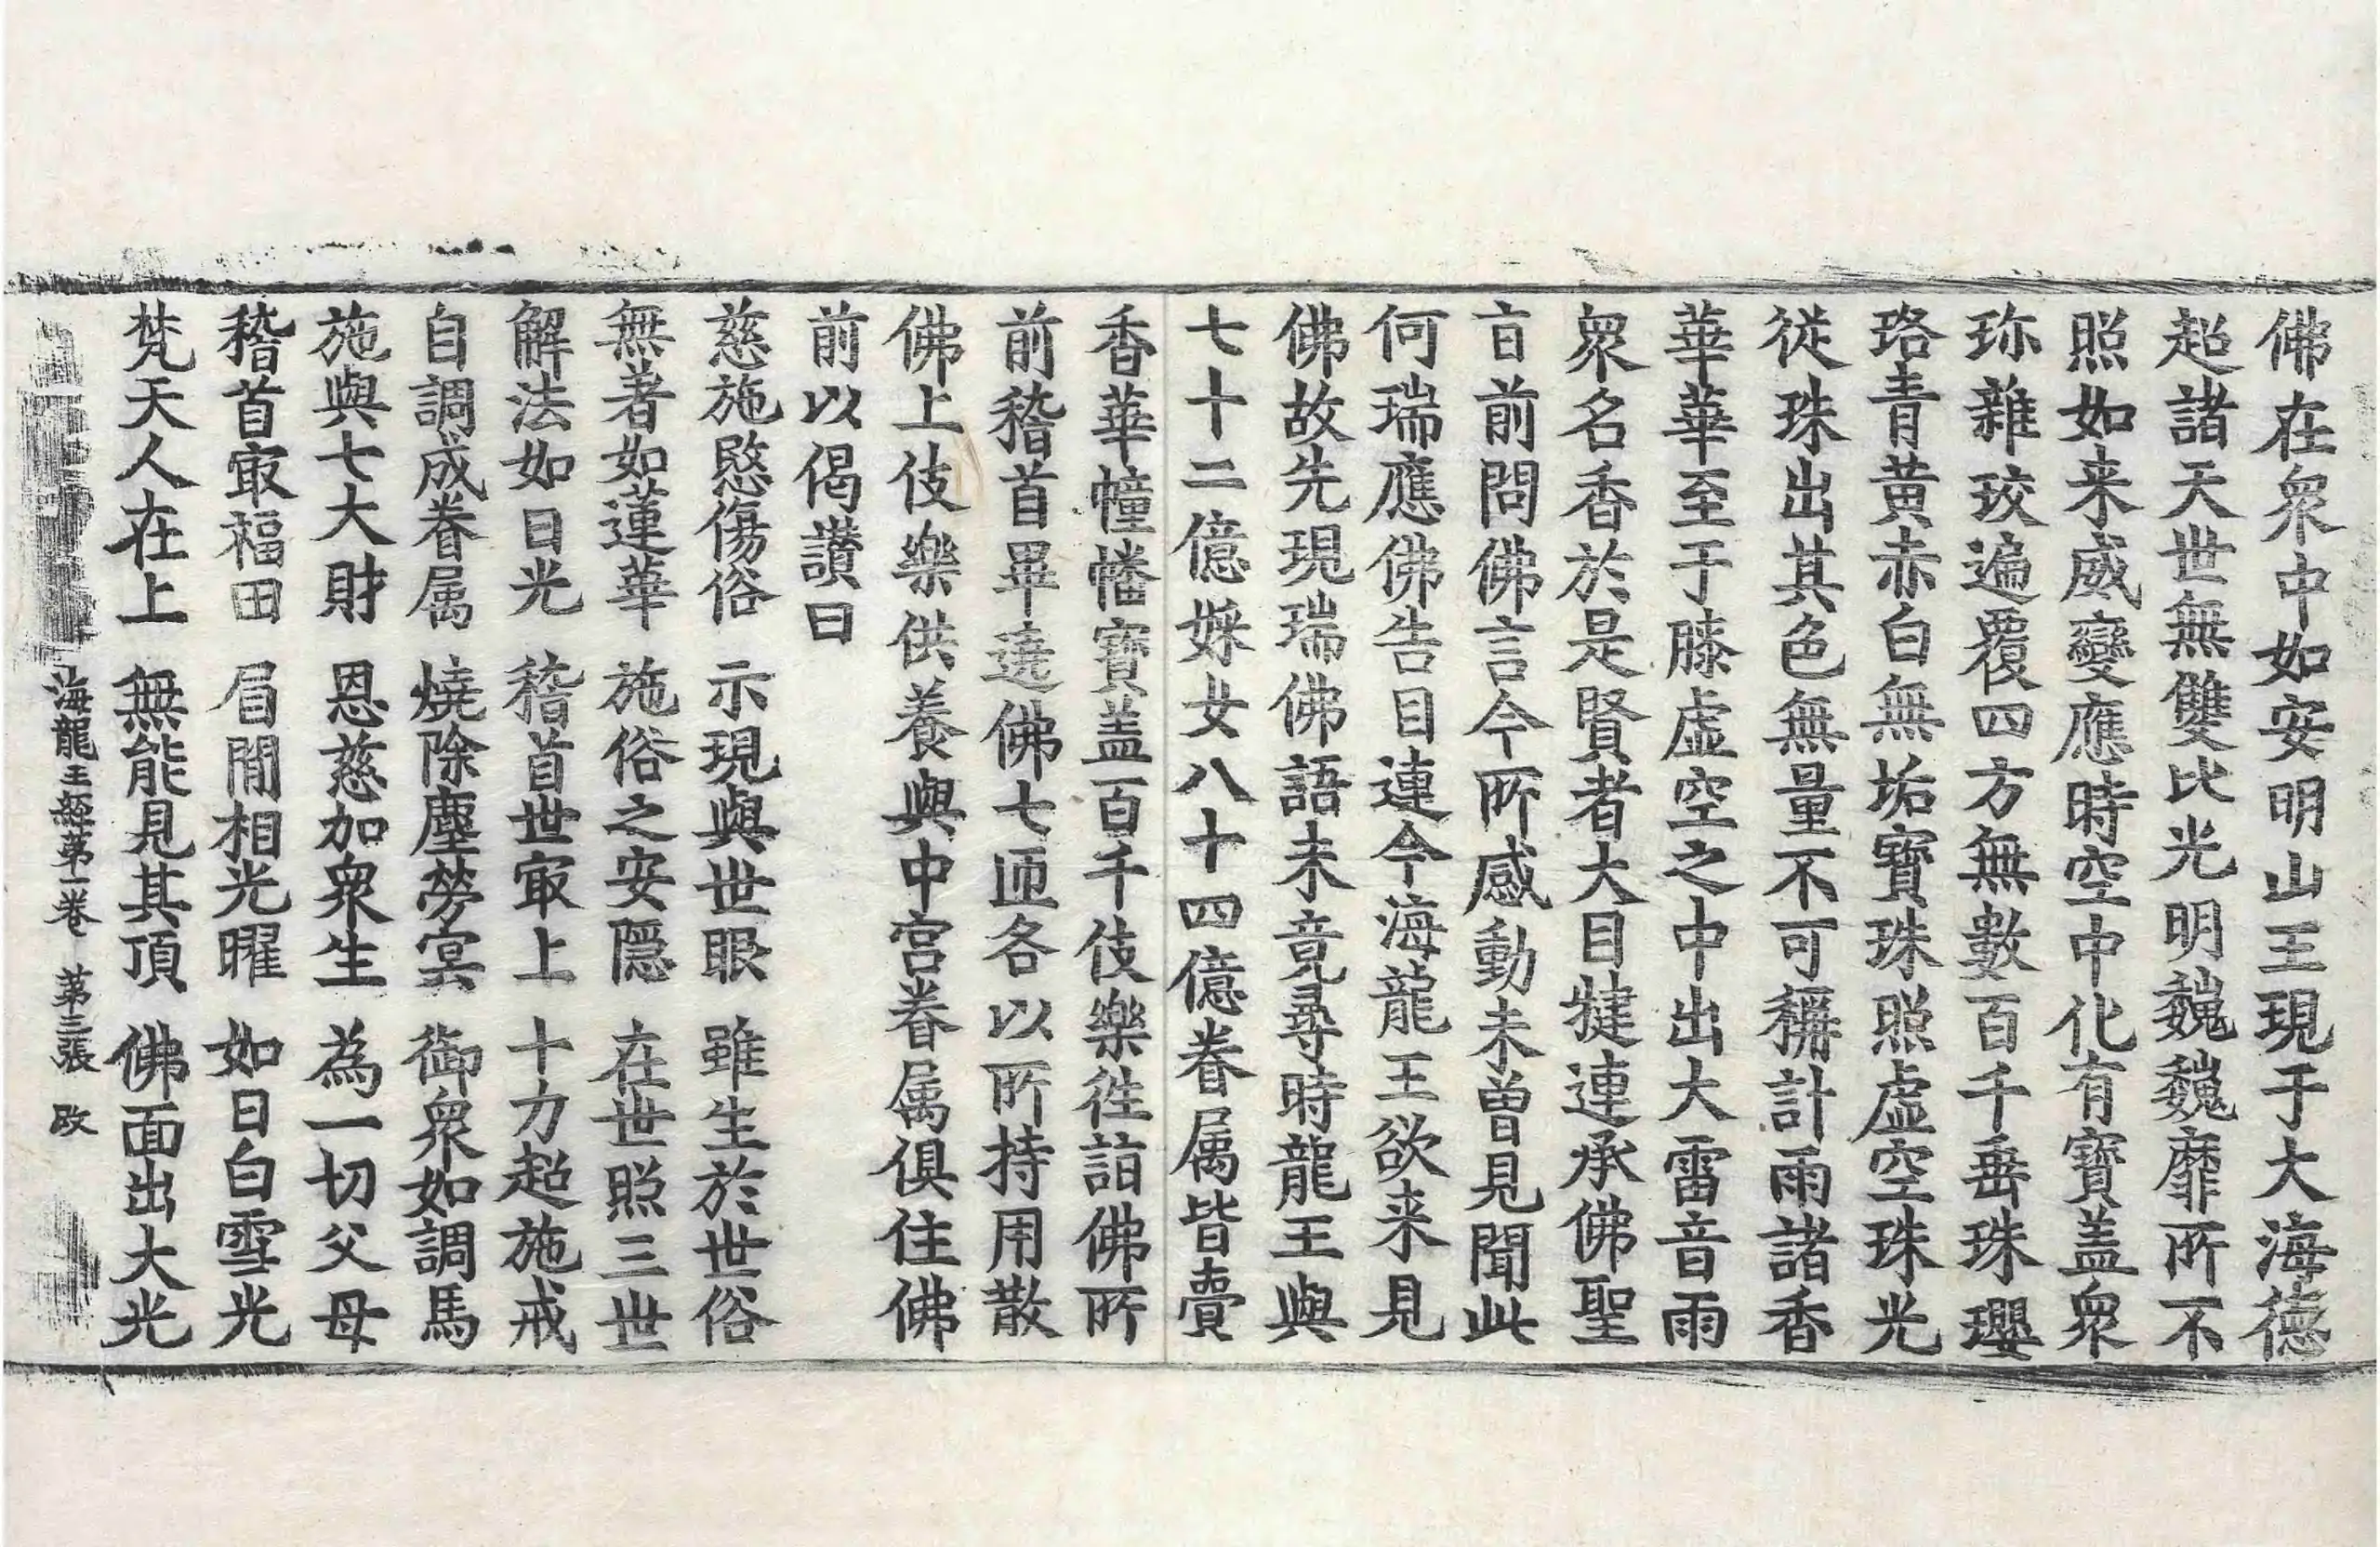 佛在衆中如安明山王現于大海德
超諸天世無雙比光明巍巍靡所不
照如来威變應時空中化有寶盖衆
珎雜珓遍覆四方無數百千垂珠瓔
珞青黃赤白無垢寶珠照虛空珠光
從珠出其色無量不可稱計雨諸香
華華至于膝虛空之中出大雷音雨
衆名香於是賢者大目揵連承佛聖
旨前問佛言今所感動未曾見聞此
何瑞應佛告目連今海龍王欲来見
佛故先現瑞佛語未竟尋時龍王與
七十二億婇女八十四億眷属皆賷
香華幢幡寶盖百千伎樂徃詣佛所
前稽首畢遶佛七匝各以所持用散
佛上伎樂供養與中宮眷属俱住佛
前以偈讃曰
慈施愍傷俗　示現與世眼　雖生於世俗
無著如蓮華　施俗之安隱　在世照三世
解法如日光　稽首世㝡上　十力超施戒
自調成眷属　燒除塵勞㝠　御衆如調馬
施與七大財　恩慈加衆生　為一切父母
稽首㝡福田　眉閒相光曜　如日白雪光
梵天人在上　無能見其頂　佛面出大光
海龍王經第一卷　第三張　改